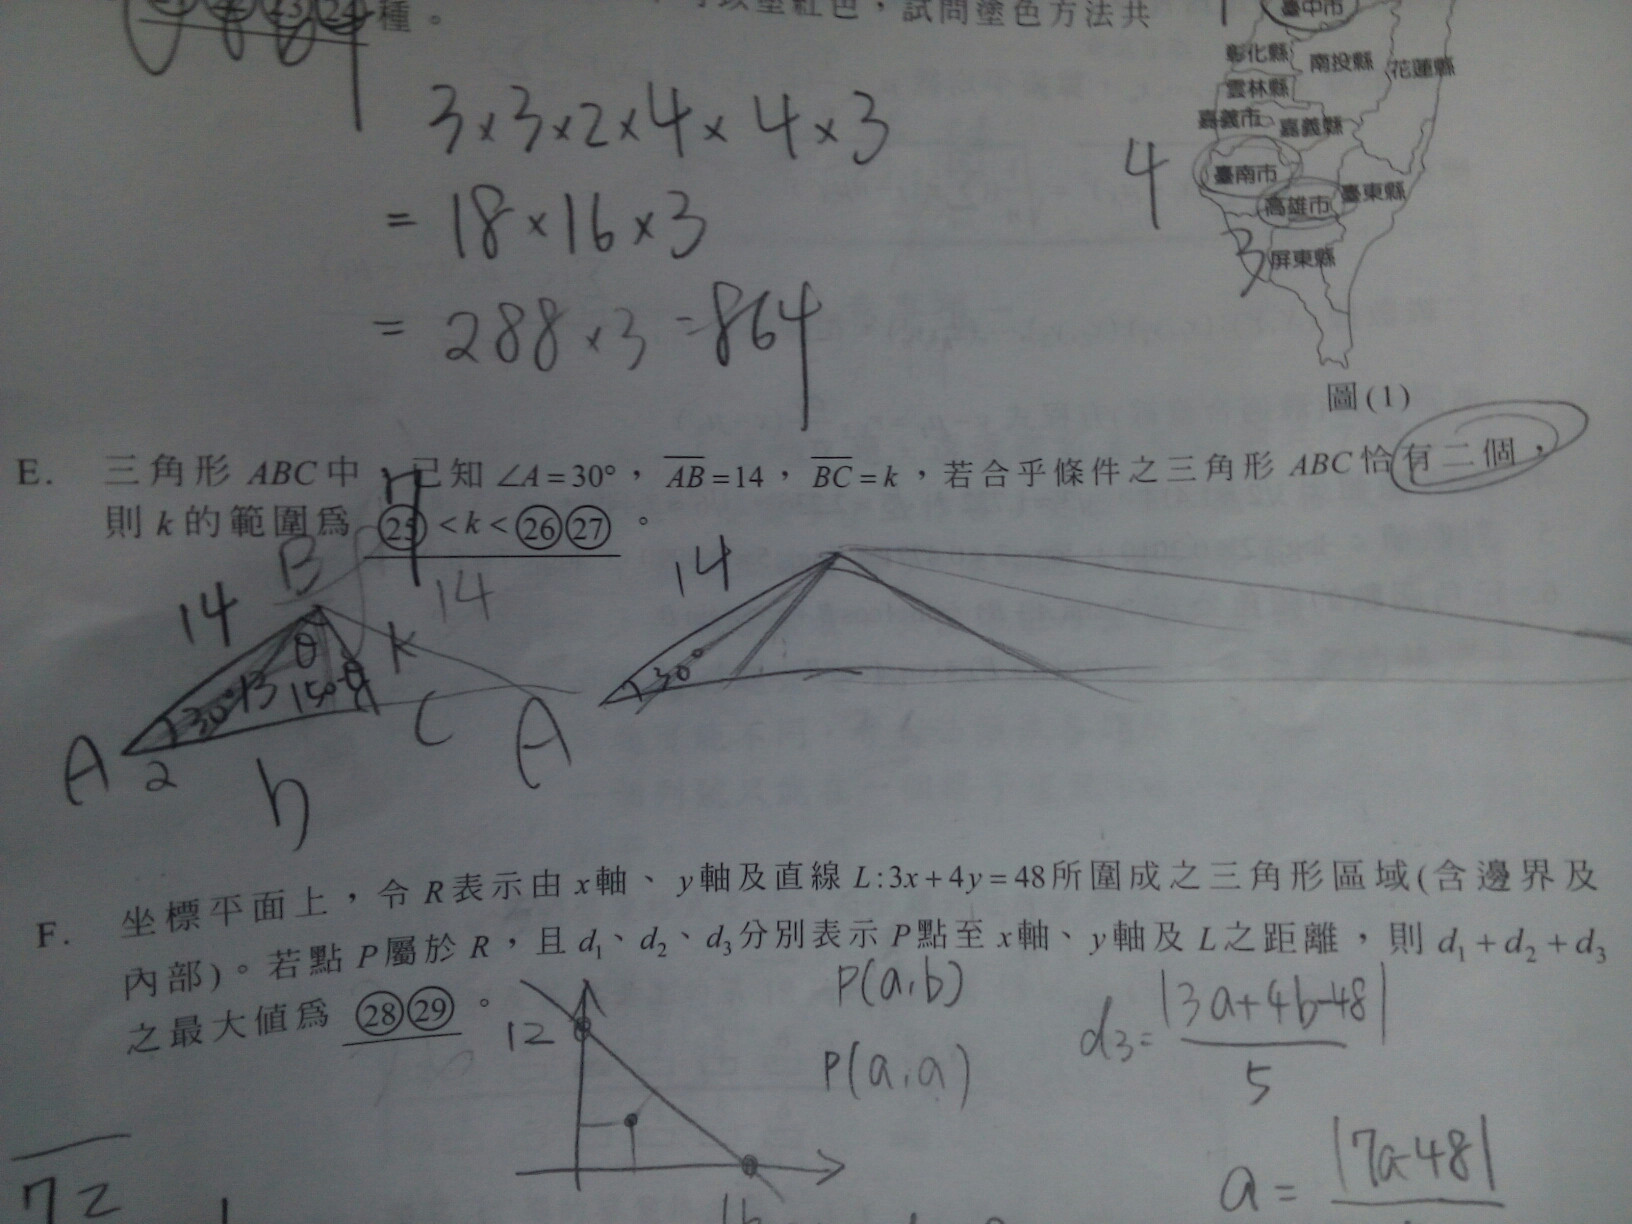 種。
試問塗色方法共
臺中市
彰化縣
南投縣
花蓮縣
雲林縣
嘉義市
嘉義縣
臺南市
高雄市
臺東縣
屏東縣
4
3
圖(1)
3×3×2×4×4×3
=18×16×3
=288×3=864
E. 三角形ABC中,已知∠A=30°,AB=14,BC=k,若合乎條件之三角形ABC恰有二個,
則k的範圍為 ㉕<k<㉖㉗ 。
7
14
14
B
θ
k
30°
13
150-θ
A
2
b
C
A
14
30°
F. 坐標平面上,令R表示由x軸、y軸及直線L:3x+4y=48所圍成之三角形區域(含邊界及
內部)。若點P屬於R,且d₁、d₂、d₃分別表示P點至x軸、y軸及L之距離,則d₁+d₂+d₃
之最大值為 ㉘㉙ 。
12
P(a,b)
P(a,a)
d₃=|3a+4b-48|
5
a=|7a-48|
72
16